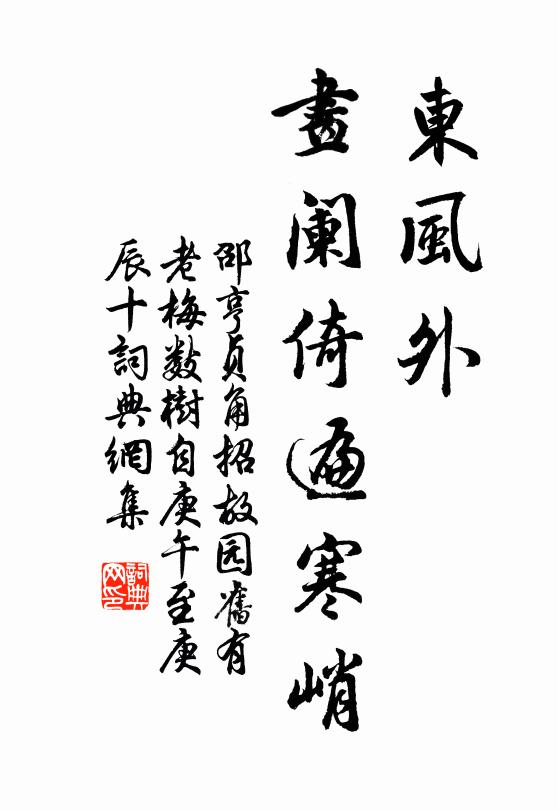 東風外
畫闌倚遍寒峭
邵亨貞角招故园舊有
老梅數樹自庚午至庚
辰十詞典網集
詞典
网印